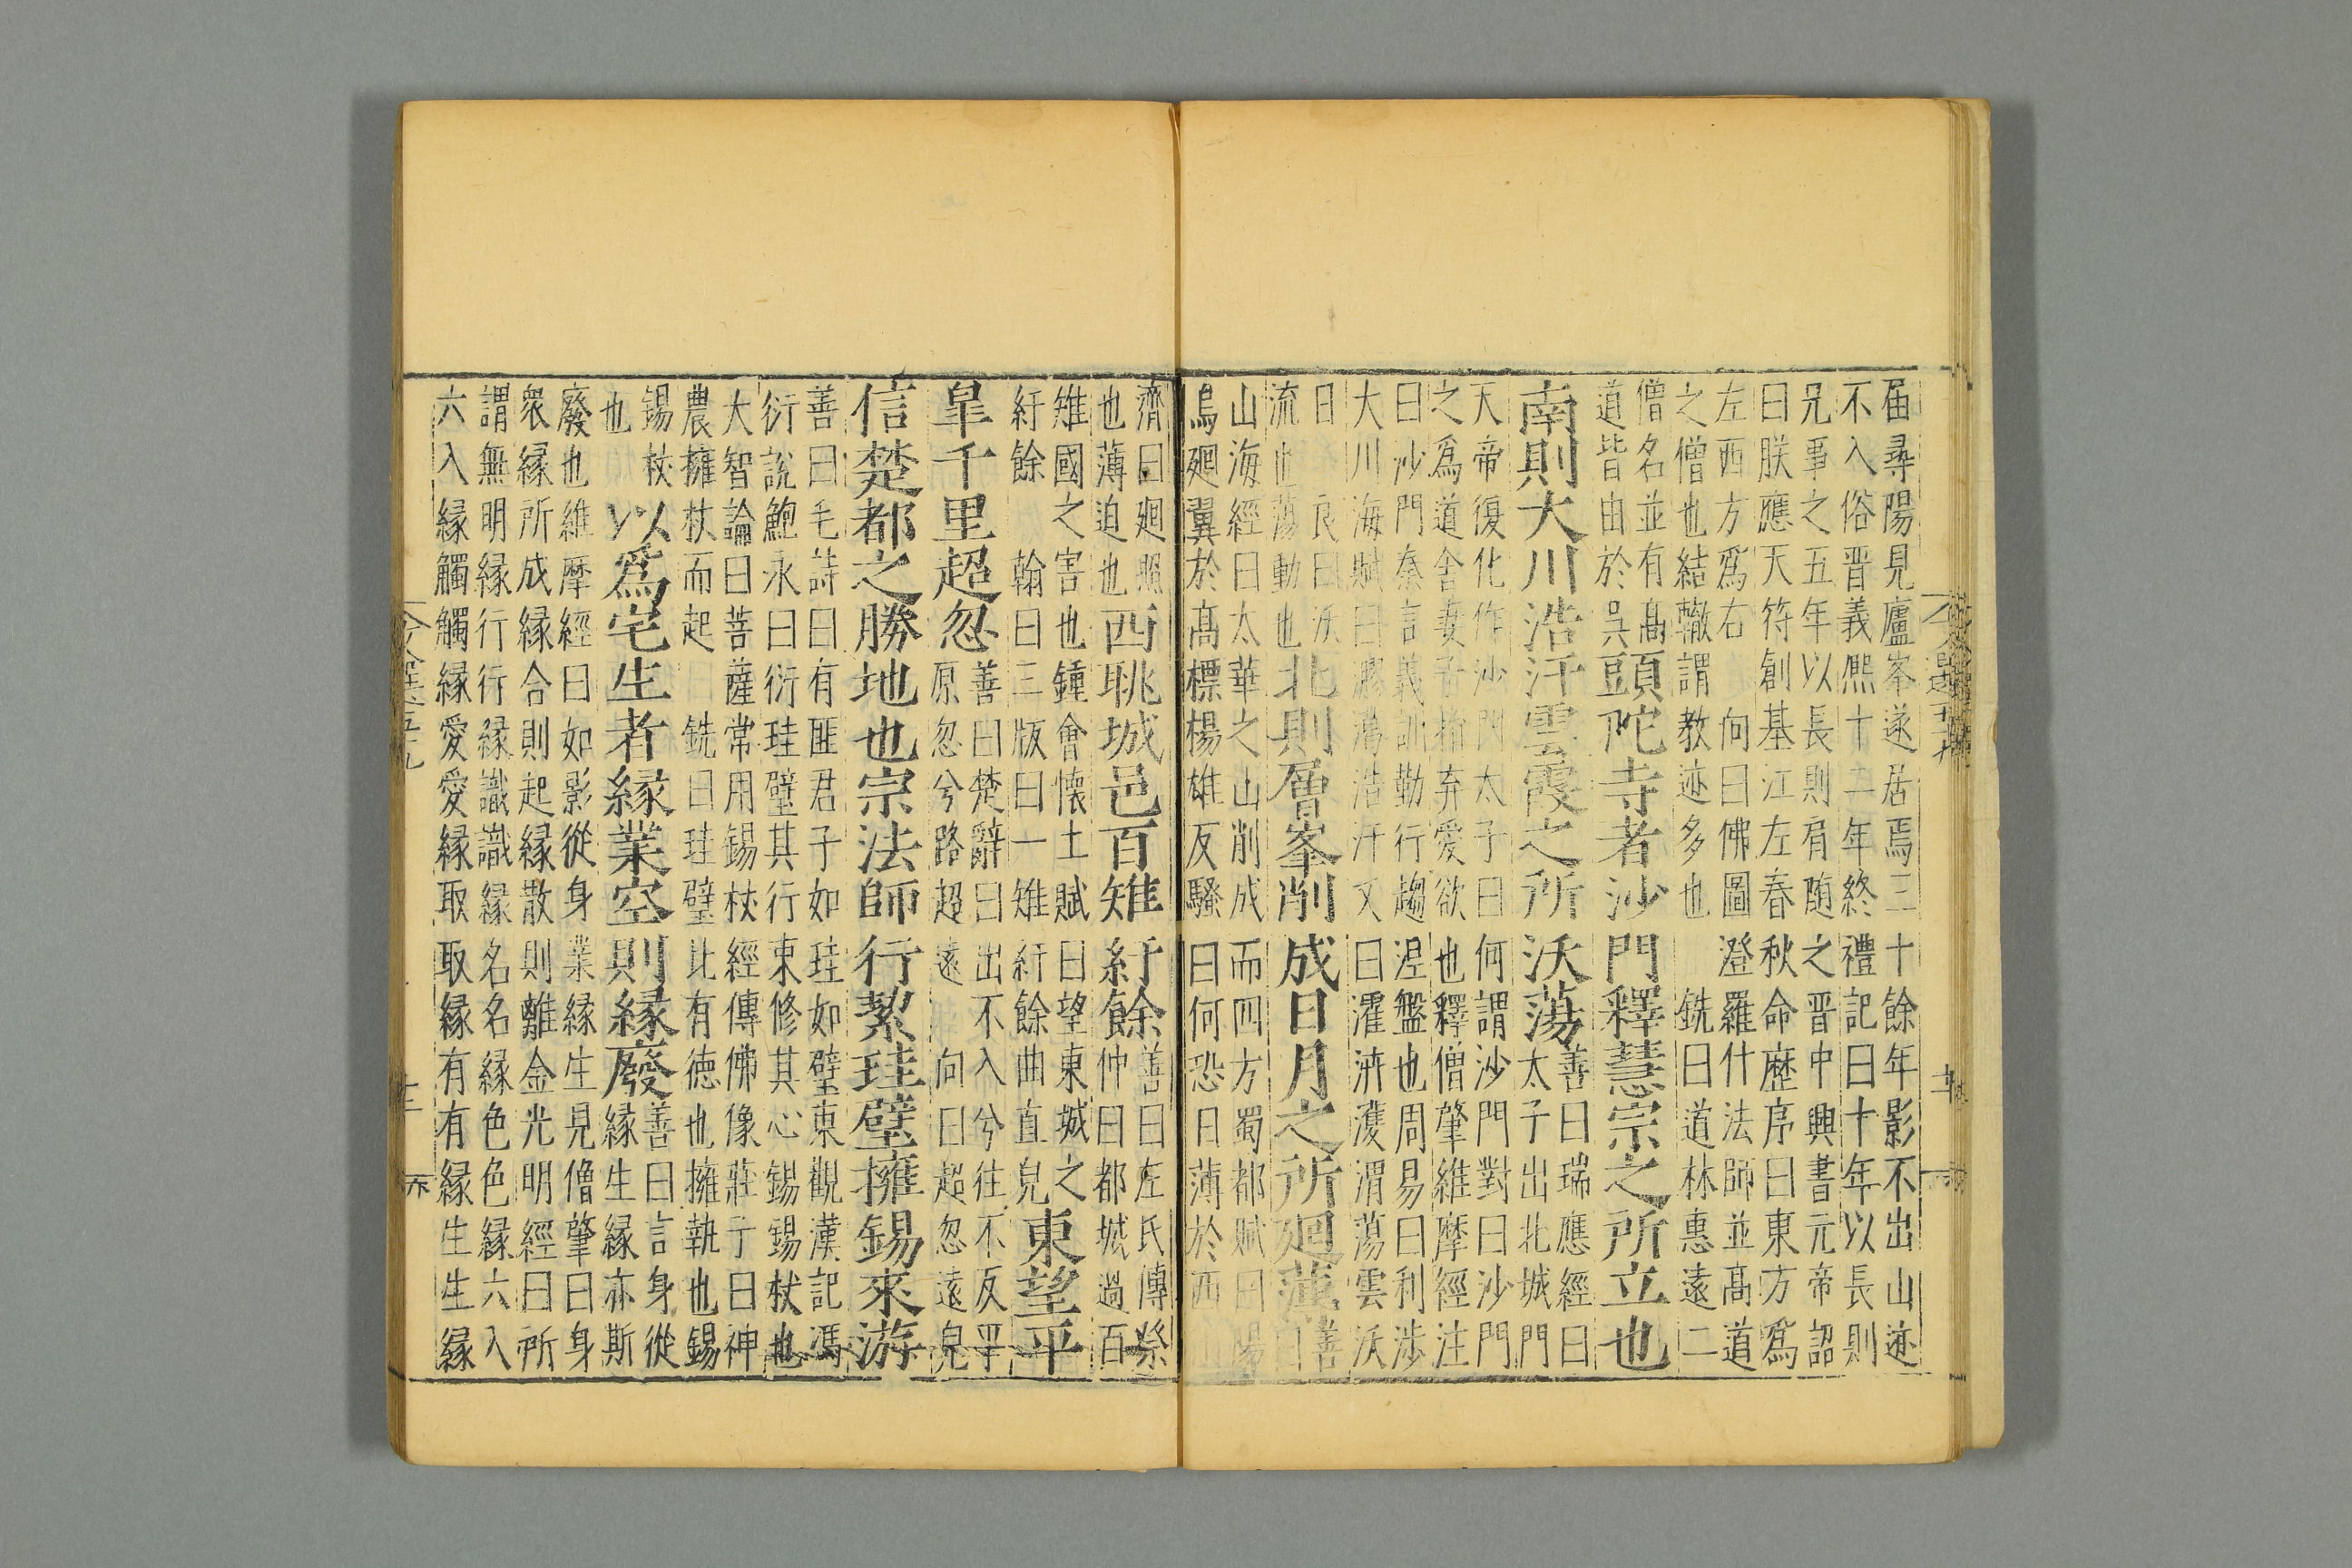 届尋陽見廬峯遂居焉三十餘年影不出山迹
不入俗晉義熈十二年終禮記曰十年以長則
兄事之五年以長則肩随之晋中興書元帝詔
曰朕應天符創基江左春秋命歴序曰東方爲
左西方爲右 向曰佛圖澄羅什法師並髙道
之僧也結轍謂教迹多也 銑曰道林惠遠二
僧名並有髙
道皆由於呉頭陀寺者沙門釋慧宗之所立也
南則大川浩汗雲霞之所沃蕩善曰瑞應經曰
太子出北城門
天帝復化作沙門太子曰何謂沙門對曰沙門
之爲道舍妻子捐弃愛欲也釋僧肇維摩經注
曰沙門秦言義訓勤行趨涅盤也周易曰利渉
大川海賦曰膠浩汗又曰濯濟濩渭蕩雲沃
日 良曰沃
流也蕩動也北則層峯削成日月之所廻薄善
山海經曰太華之山削成而四方蜀都賦曰陽
烏廻翼於髙標楊雄反騷曰何恐日薄於西
濟曰廻照
也薄迫也西眺城邑百雉紆餘善曰左氏傳祭
仲曰都城過百
雉國之害也鍾會懐土賦曰望東城之
紆餘 翰曰三版曰一雉紆餘曲直皃東望平
皐千里超忽善曰楚辭曰出不入兮往不反平
原忽兮路超遠 向曰超忽遠皃
信楚都之勝地也宗法師行絜珪璧擁錫來游
善曰毛詩曰有匪君子如珪如璧東觀漢記馮
衍説鮑永曰衍珪璧其行束修其心錫錫杖也
大智論曰菩薩常用錫杖經傳佛像莊子曰神
農擁杖而起 銑曰珪璧比有徳也擁執也錫
錫杖
也 以爲宅生者縁業空則縁廢善曰言身從
縁生縁亦斯
廢也維摩經曰如影從身業縁生見僧肇曰身
衆縁所成縁合則起縁散則離金光明經曰所
謂無明縁行行縁識識縁名名縁色色縁六入
六入縁觸觸縁愛愛縁取取縁有有縁生生縁